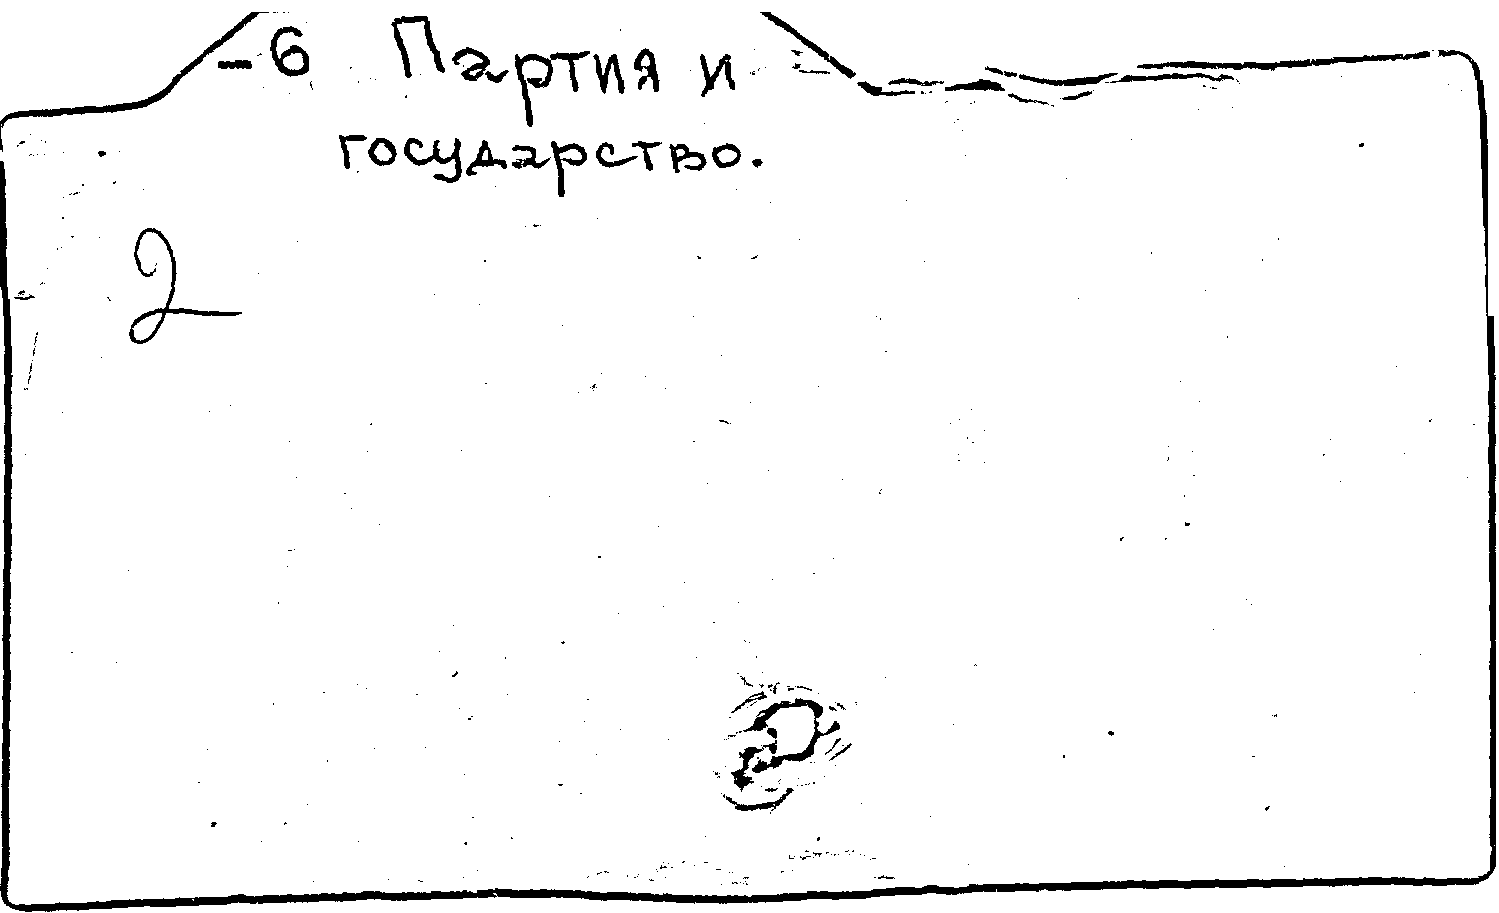 -6 Партия и
государство.
2